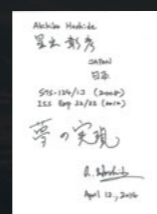 Akihiko Hoshide
星出 彰彦
JAPAN
日本
STS-124/1J (2008)
ISS Exp 32/33 (2012)
夢の実現
A. Hoshide
April 12, 2016